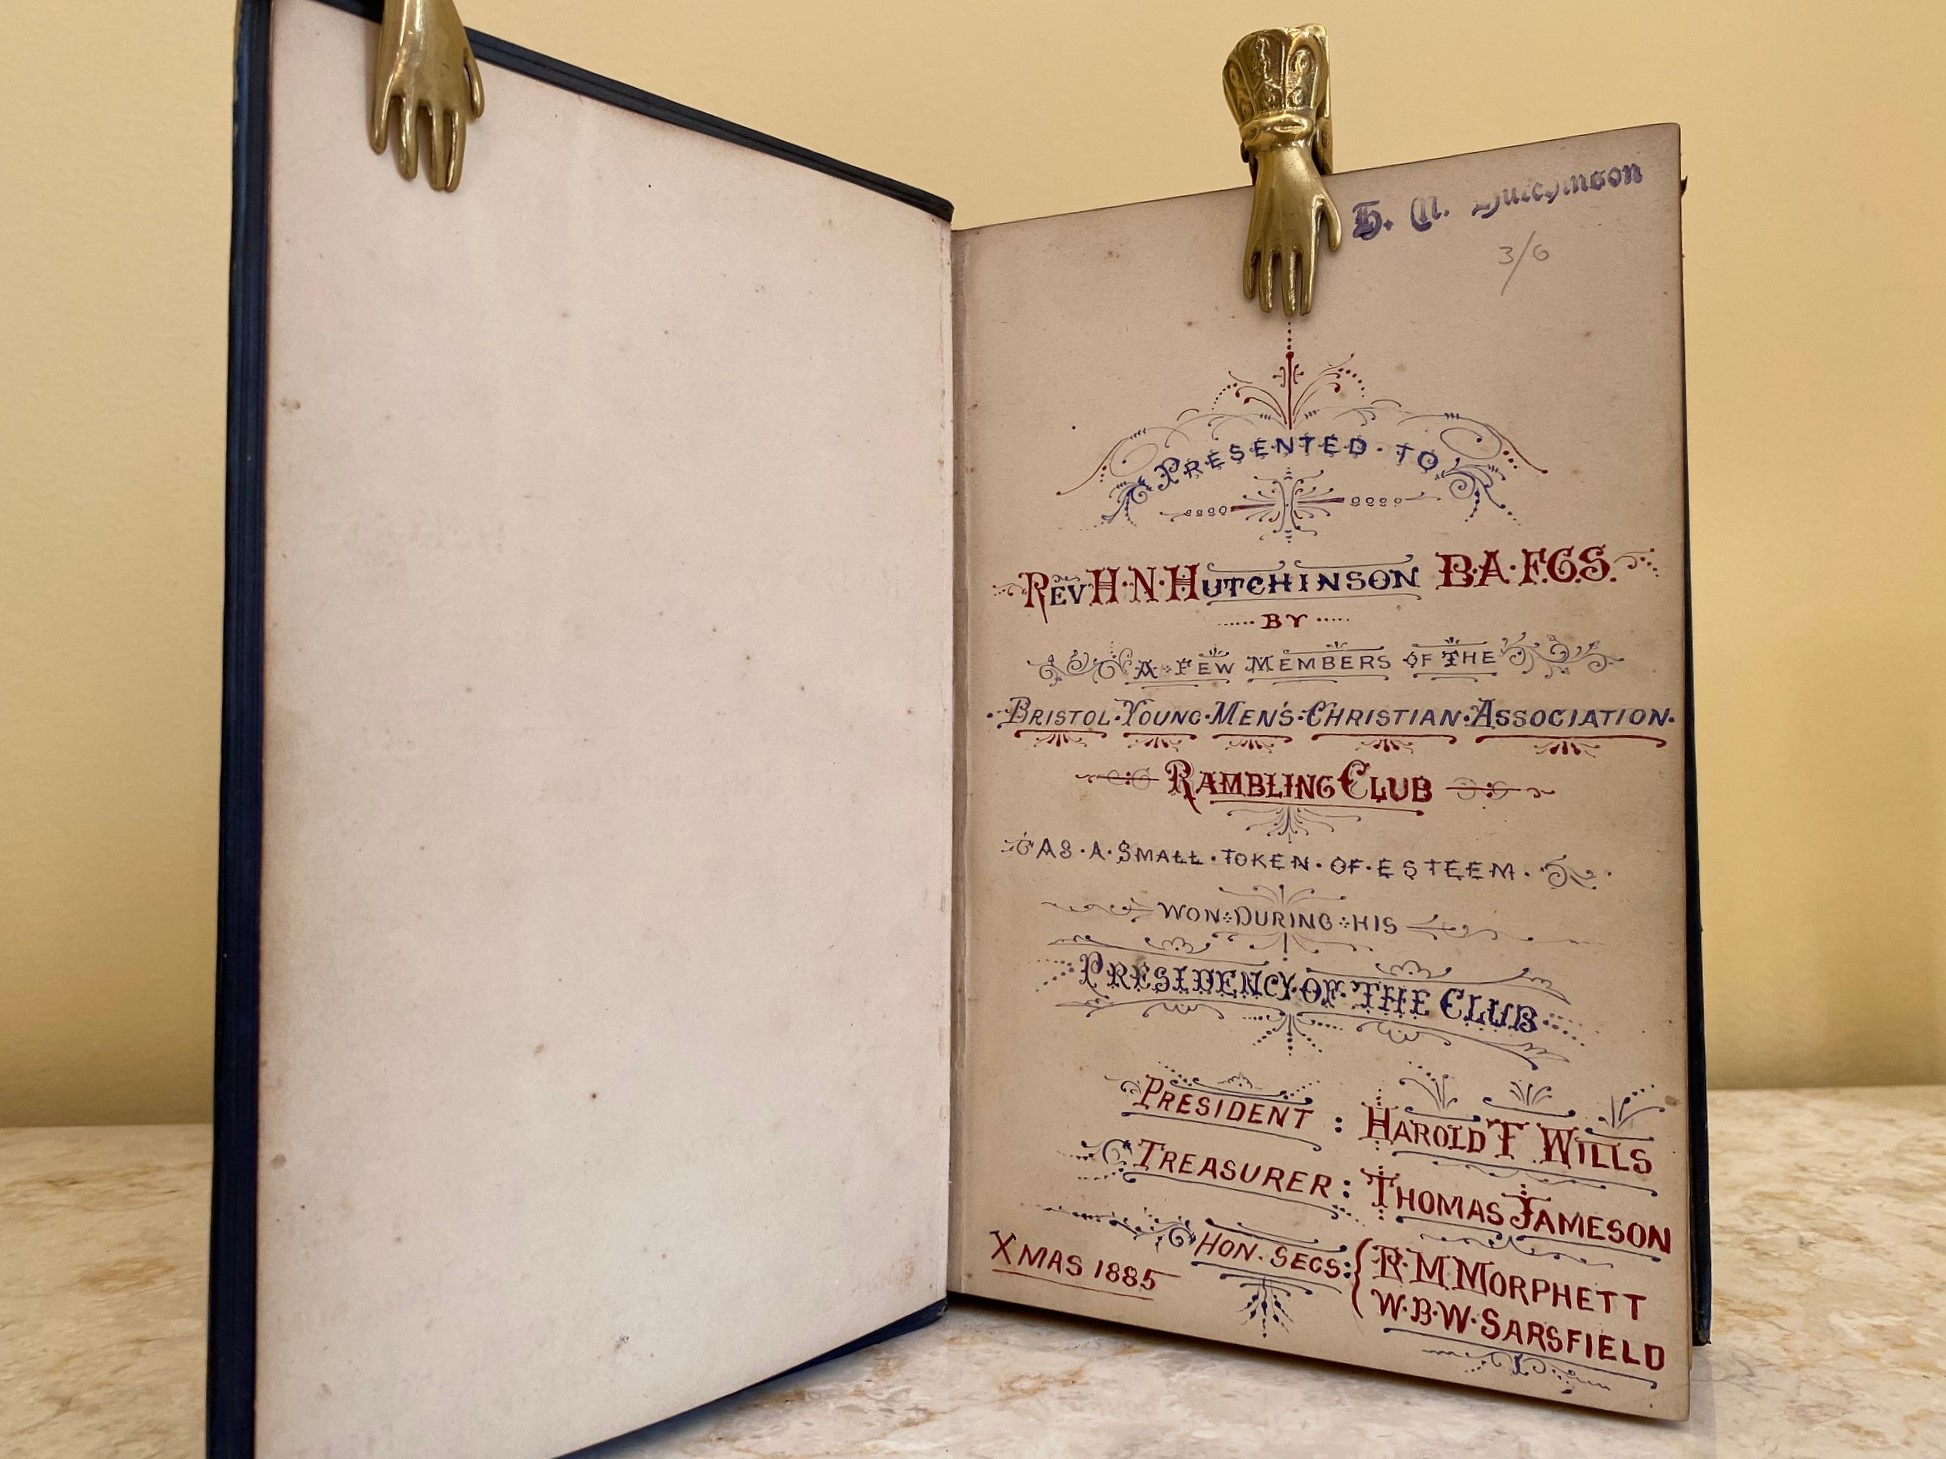 H. N. Hutchinson
3/6
PRESENTED · TO
REV H · N · HUTCHINSON B · A · F.G.S.
BY
A FEW MEMBERS OF THE
BRISTOL · YOUNG · MEN'S · CHRISTIAN · ASSOCIATION ·
RAMBLING CLUB
AS · A · SMALL · TOKEN · OF · ESTEEM ·
WON DURING HIS
PRESIDENCY · OF · THE CLUB
PRESIDENT : HAROLD T WILLS
TREASURER : THOMAS JAMESON
HON. SECS: { R · M MORPHETT
W · B · W · SARSFIELD
XMAS 1885